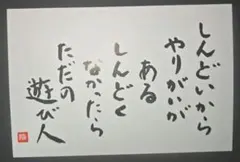 しんどいから
やりがいが
ある
しんどく
なかったら
ただの
遊び人